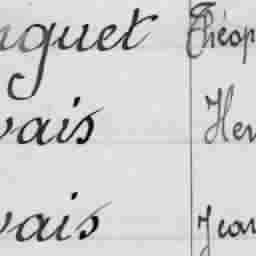 nguet Théop
vais Hen
vais Jean